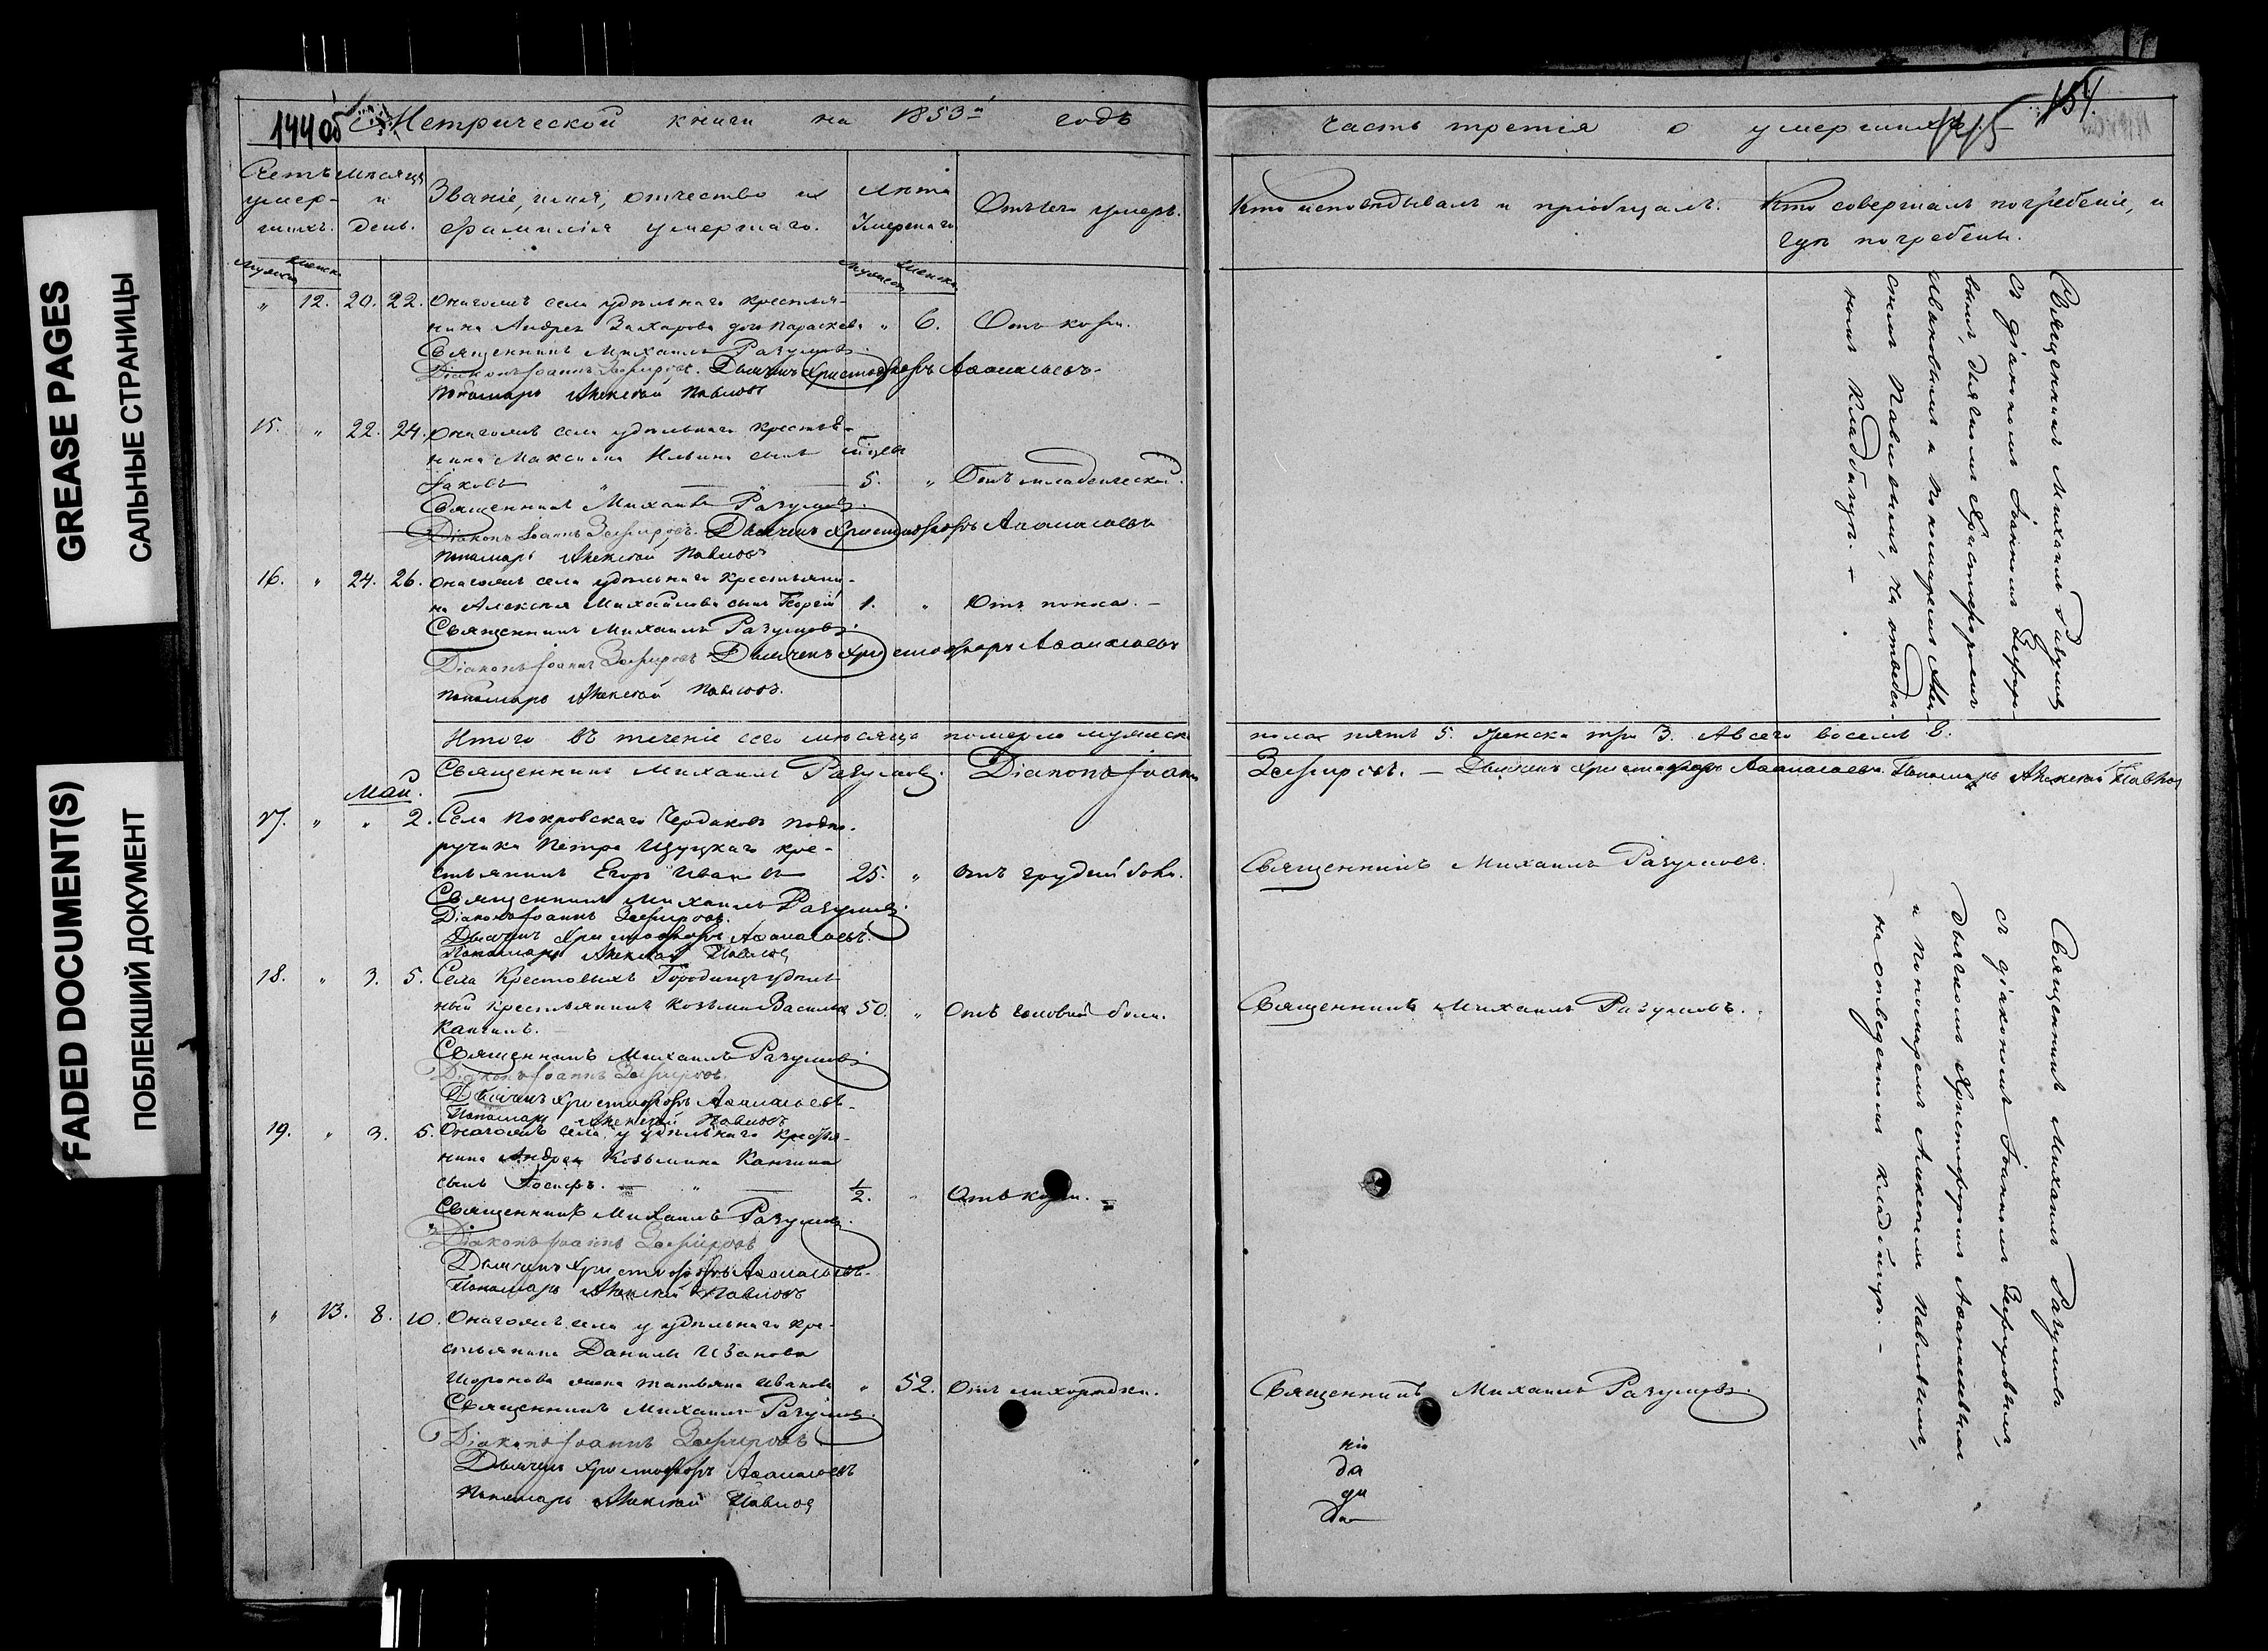 GREASE PAGES
САЛЬНЫЕ СТРАНИЦЫ
FADED DOCUMENT(S)
ПОБЛЕКШИЙ ДОКУМЕНТ
144об Метрической книги на 1853й годъ
Счетъ умер-шихъ.
Мѣсяцъ и день.
Званіе, имя, отчество и фамилія умершаго.
Лѣта Умершаго
Отъ чего умеръ.
Мужеск Женск
Мужеск Женска
" 12. 20. 22. Онагожъ села удѣльнаго крестья-
нина Андрея Захарова дочь Параскева " 6. Отъ кори.
Священникъ Михаилъ Разумовъ.
Діаконъ Іоаннъ Зефировъ. Дьячекъ Христофоръ Аѳанасьевъ.
Пономарь Алексѣй Павловъ
15. " 22. 24. Онагожъ села удѣльнаго крестья-
нина Максима Ильина сынъ мѣсцы
Іаковъ — " — 5. " Отъ младенческой.
Священникъ Михаилъ Разумовъ.
Діаконъ Іоаннъ Зефировъ. Дьячекъ Христофоръ Аѳанасьевъ
Пономарь Алексѣй Павловъ
16. " 24. 26. Онагожъ села удѣльнаго крестьяни-
на Алексѣя Михайлова сынъ Георгій 1. " Отъ поноса. —
Священникъ Михаилъ Разумовъ.
Діаконъ Іоаннъ Зефировъ Дьячекъ Христофоръ Аѳанасьевъ
Пономарь Алексѣй Павловъ.
Итого въ теченіе сего мѣсяца померло мужеск
Священникъ Михаилъ Разумовъ. Діаконъ Іоаннъ
Май.
17. " " 2. Села Покровскаго Чердаковъ подпо-
ручика Петра кре-
стьянинъ Егоръ Ивановъ 25. " Отъ грудной боли.
Священникъ Михаилъ Разумовъ.
Діаконъ Іоаннъ Зефировъ.
Дьячекъ Христофоръ Аѳанасьевъ.
Пономарь Алексѣй Павловъ
18. " 3. 5. Села Крестовыхъ Городищъ удѣль
ный крестьянинъ Козьма Васильевъ 50. " Отъ головной боли.
Священникъ Михаилъ Разумовъ.
Діаконъ Іоаннъ Зефировъ.
Дьячекъ Христофоръ Аѳанасьевъ.
Пономарь Алексѣй Павловъ
19. " 3. 5. Онагожъ села удѣльнаго крестья-
нина Андрея Козьмина
сынъ Іосифъ. — " — 1/2. " Отъ кори. —
Священникъ Михаилъ Разумовъ.
Діаконъ Іоаннъ Зефировъ
Дьячекъ Христофоръ Аѳанасьевъ.
Пономарь Алексѣй Павловъ
" 13. 8. 10. Онагожъ села удѣльнаго кре-
стьянина Данилы Иванова
жена Татьяна Иванова " 52. Отъ лихорадки.
Священникъ Михаилъ Разумовъ.
Діаконъ Іоаннъ Зефировъ.
Дьячекъ Христофоръ Аѳанасьевъ
Пономарь Алексѣй Павловъ
часть третія о умершихъ 145 154.
Кто исповѣдывалъ и пріобщалъ.
Кто совершалъ погребеніе, и
гдѣ погребены.
Священникъ Михаилъ Разумовъ
съ діакономъ Іоанномъ Зефиро-
вымъ, дьячкомъ Христофоромъ
Ивановымъ и пономаремъ Але-
ксѣемъ Павловымъ, на отведен-
номъ кладбищѣ. —
пола пять 5. женска три 3. А всего восемь 8.
Зефировъ. — Дьячекъ Христофоръ Аѳанасьевъ. Пономарь Алексѣй Павлов
Священникъ Михаилъ Разумовъ.
Священникъ Михаилъ Разумовъ.
Священникъ Михаилъ Разумовъ.
Священникъ Михаилъ Разумовъ
съ діакономъ Іоанномъ Зефировымъ,
дьячкомъ Христофоромъ Аѳанасьевымъ
и пономаремъ Алексѣемъ Павловымъ,
на отведенномъ кладбищѣ. —
да